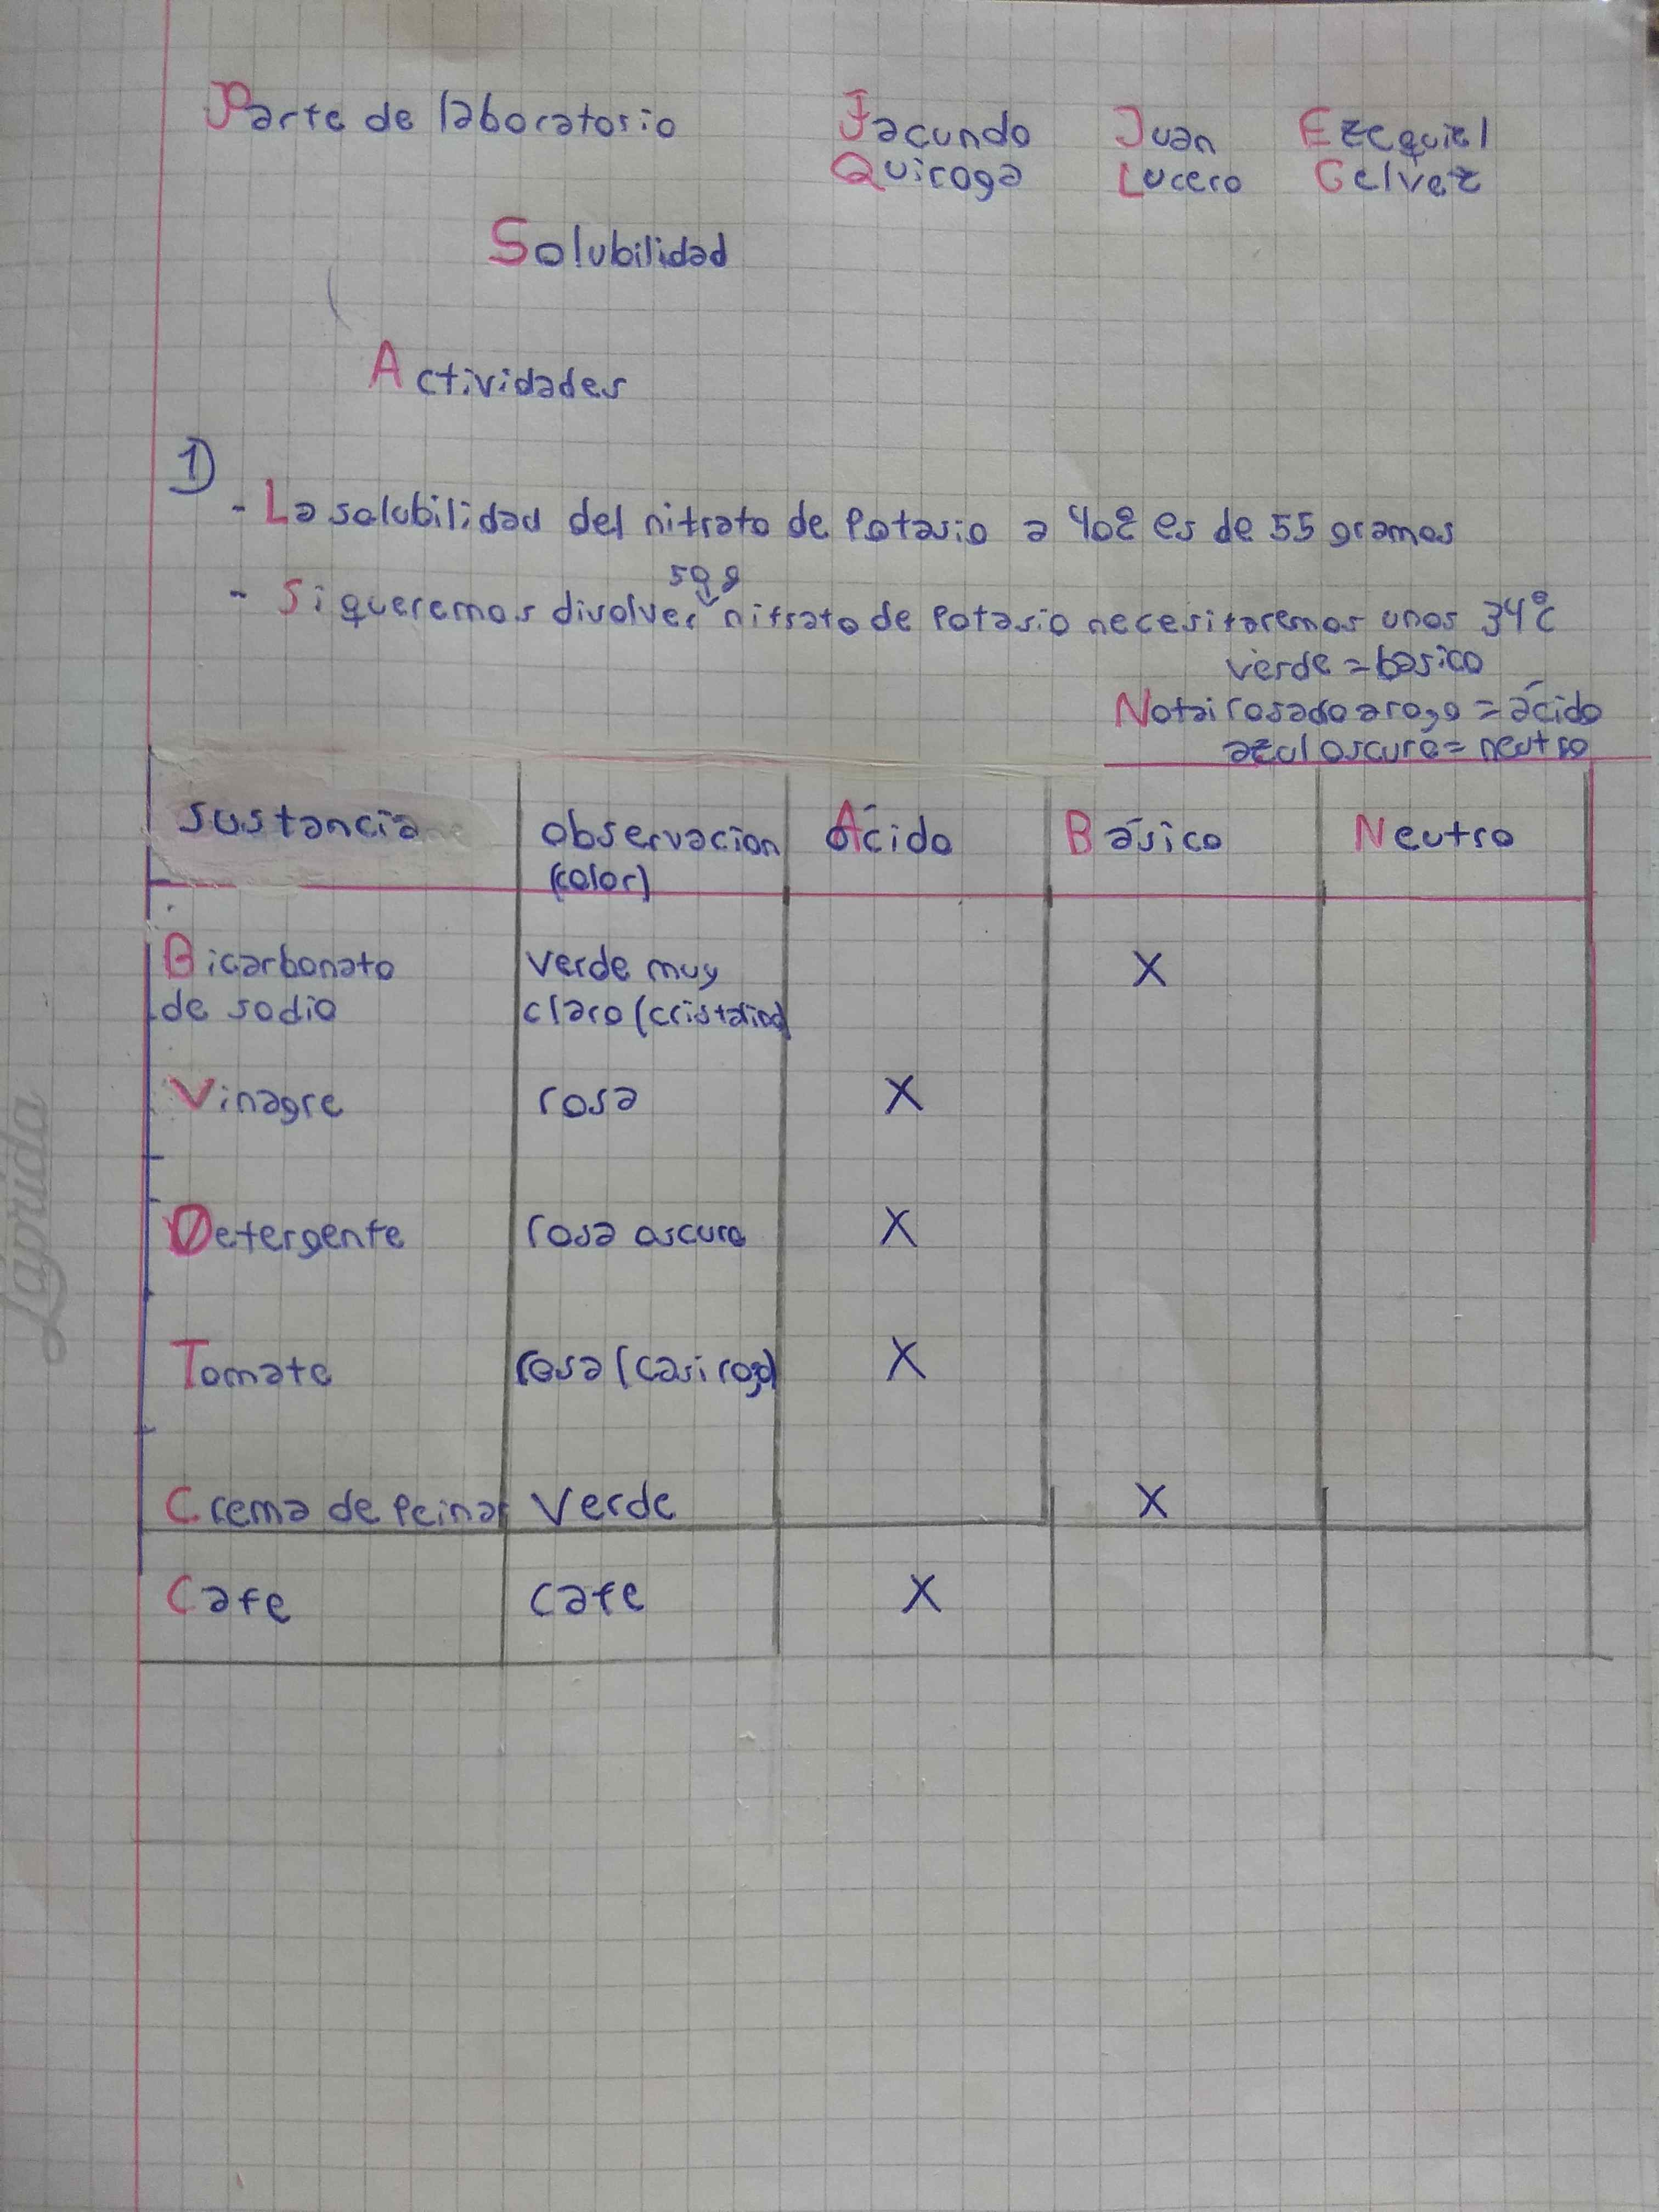 Parte de laboratorio
Facundo Quiroga
Juan Lucero
Ezequiel Gelvez
Solubilidad
Actividades
1)
- La solubilidad del nitrato de Potasio a 40º es de 55 gramos
- Si queremos divolver 50 g nitrato de Potasio necesitaremos unos 34ºc
verde = basico
Nota: rosado a rojo = ácido
azul oscuro = neutro
sustancia observacion (color) Ácido Básico Neutro
Bicarbonato verde muy X
de sodio claro (cristalino)
Vinagre rosa X
Detergente rosa oscuro X
Tomate rosa (casi rojo) X
Crema de Peinar Verde X
Cafe cafe X
Laprida